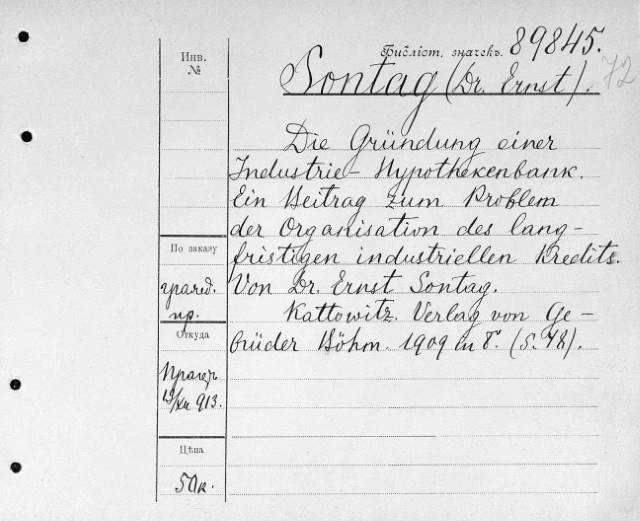 Библіот. значекъ 89845.
Инв.
№
Sontag (Dr. Ernst). 72
Die Gründung einer
Industrie-Hypothekenbank.
Ein Beitrag zum Problem
der Organisation des lang-
fristigen industriellen Kredits.
Von Dr. Ernst Sontag.
Kattowitz. Verlag von Ge-
brüder Böhm. 1909 in 8°. (S. 48).
По заказу
гражд.
пр.
Откуда
Прагер
13/XII 913.
Цѣна
50 к.